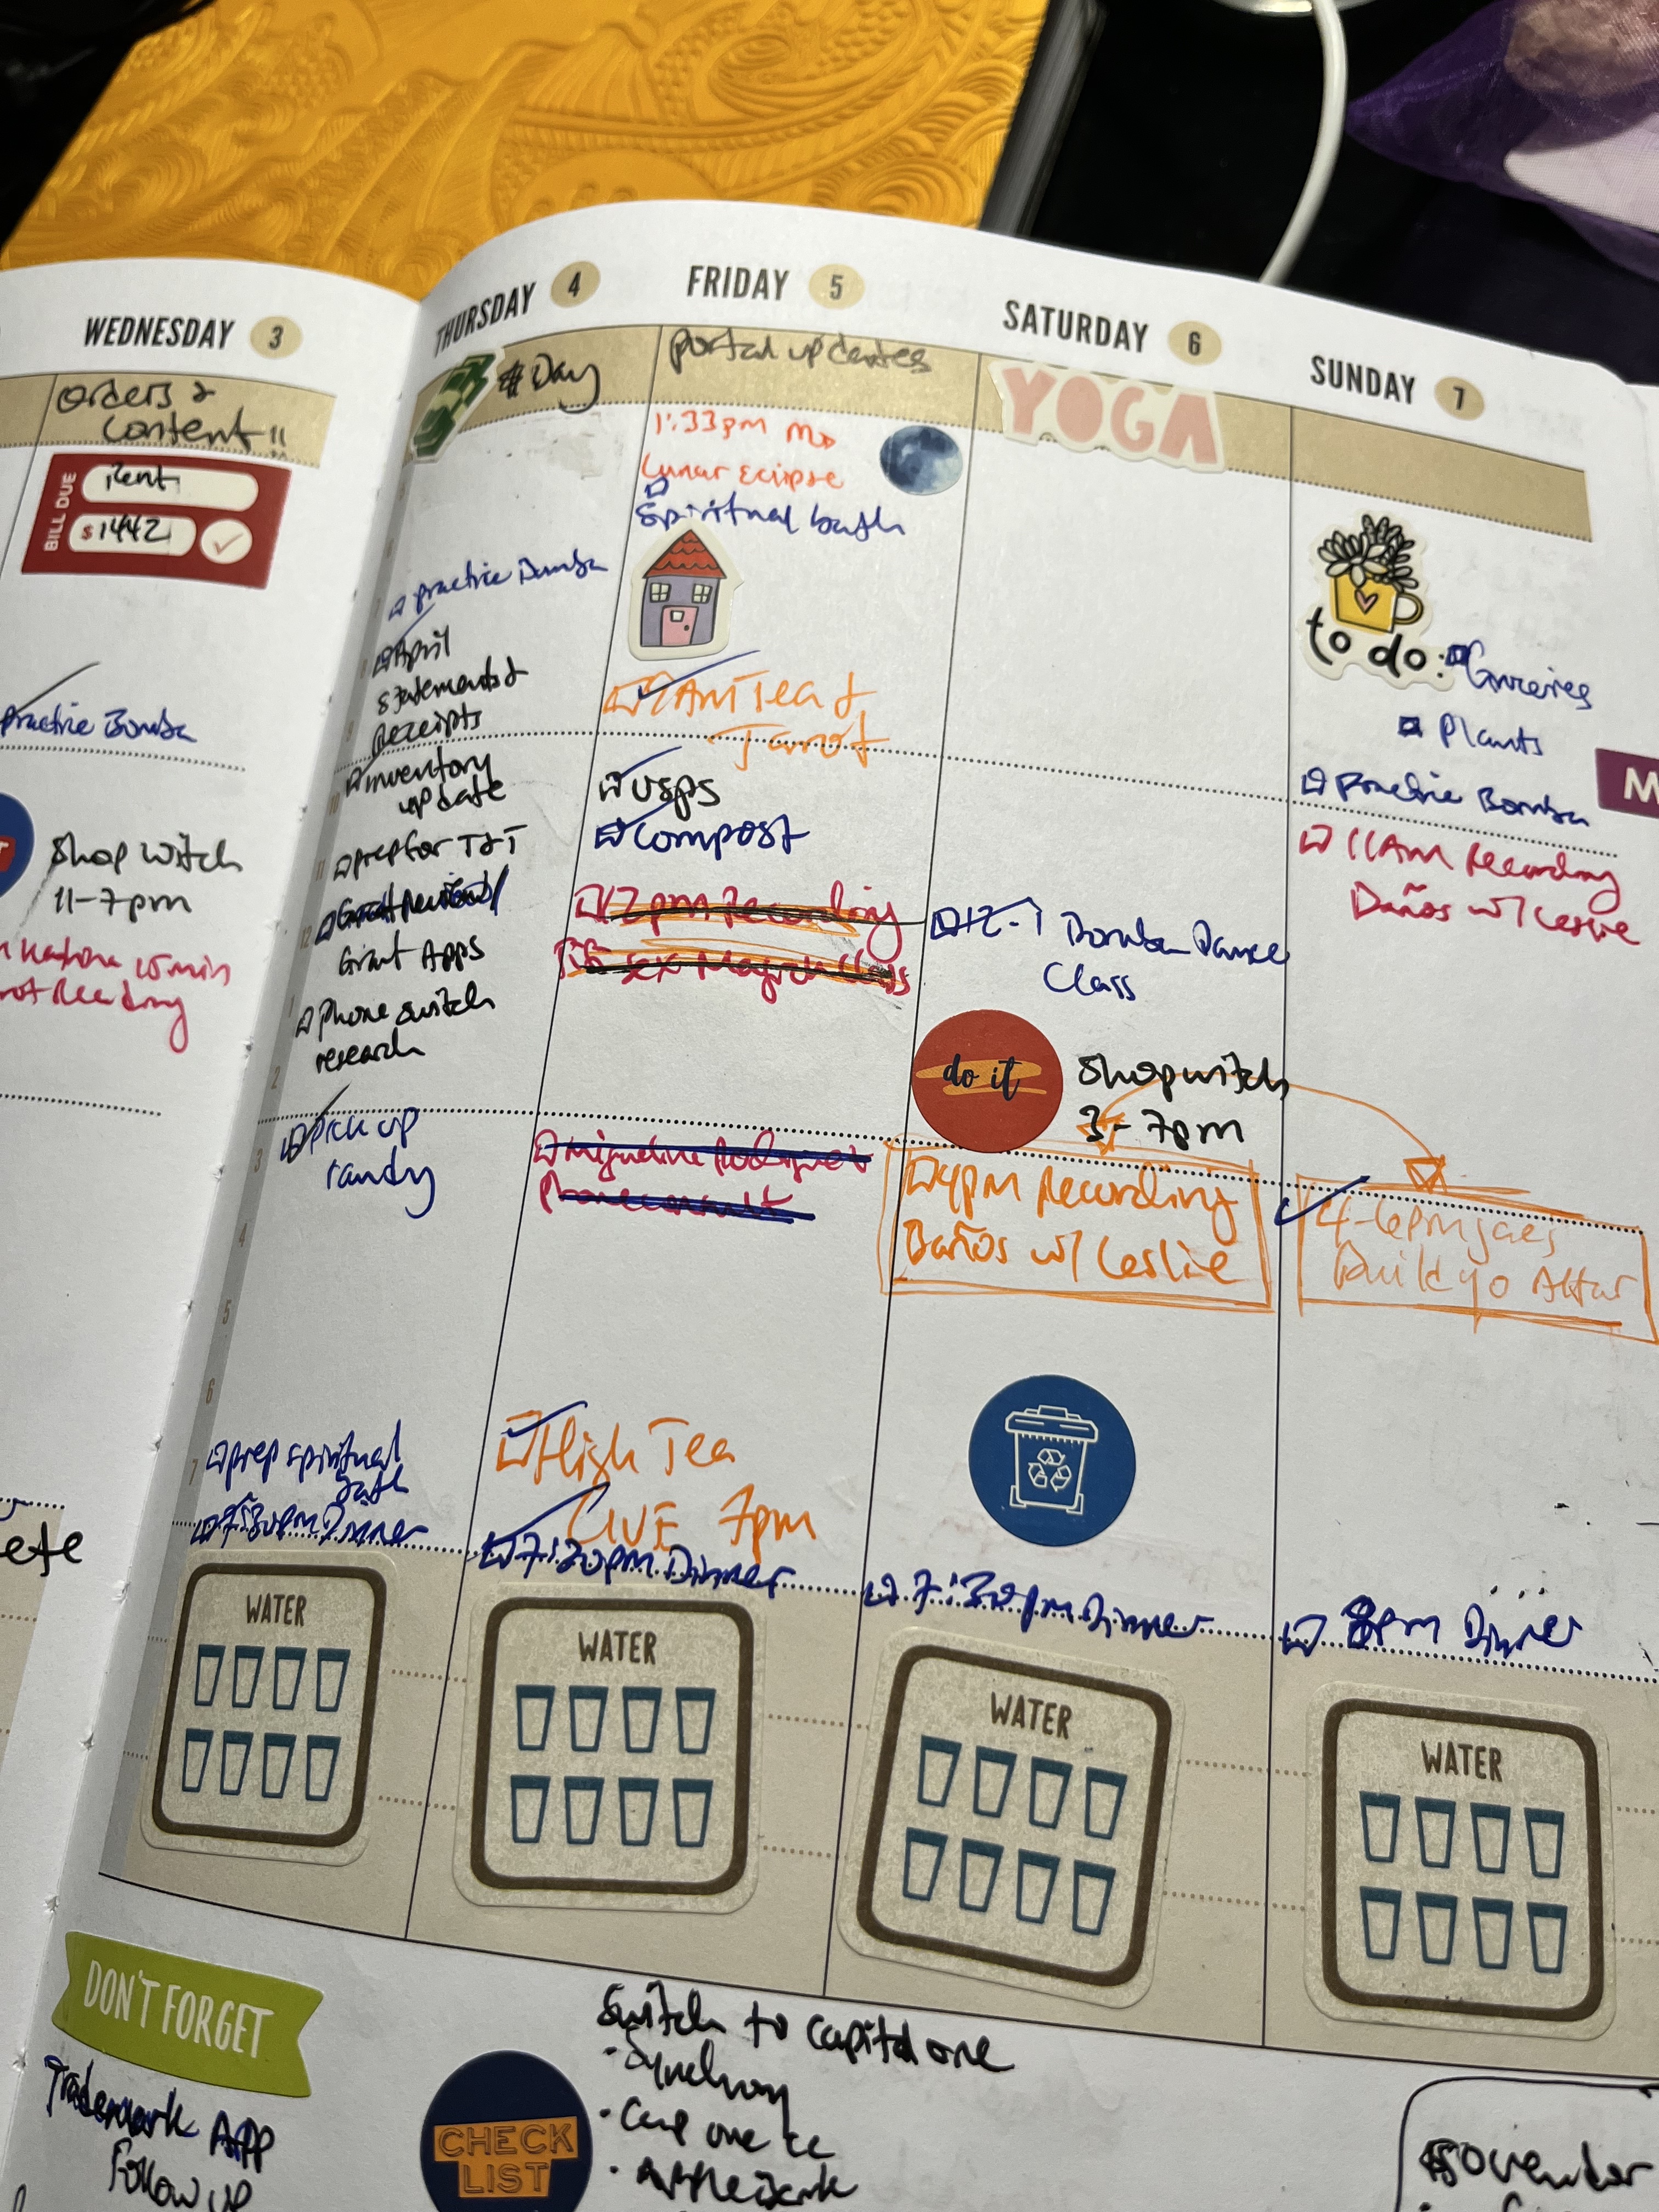 WEDNESDAY 3
orders &
content
BILL DUE
Rent
$ 1442
Practice Bomba
Shop Witch
11-7pm
15 min
Reading
ete
THURSDAY 4
$ Day
practice Bomba
April
statements &
Receipts
inventory
update
prep for T&T
Grant Apps
phone switch
research
pick up
randy
prep spiritual
bath
7:30pm Dinner
7
8
9
10
11
12
1
2
3
4
5
6
7
WATER
FRIDAY 5
portal updates
1:33pm
Lunar Eclipse
Spiritual bath
9AM Tea &
Tarot
USPS
Compost
12pm Recording
Sex Magick Class
Phone consult
High Tea
LIVE 7pm
7:30pm Dinner
WATER
SATURDAY 6
YOGA
12-1 Bomba Dance
Class
do it
Shop witch
3-7pm
4pm Recording
Baños w/ Leslie
7:30pm Dinner
WATER
SUNDAY 7
to do:
Groceries
Plants
practice Bomba
M
11AM Recording
Baños w/ Leslie
4-6pm
Build yo Altar
8pm Dinner
WATER
DON'T FORGET
Trademark App
Follow up
CHECK
LIST
Switch to capital one
• Synchrony
• Cap one cc